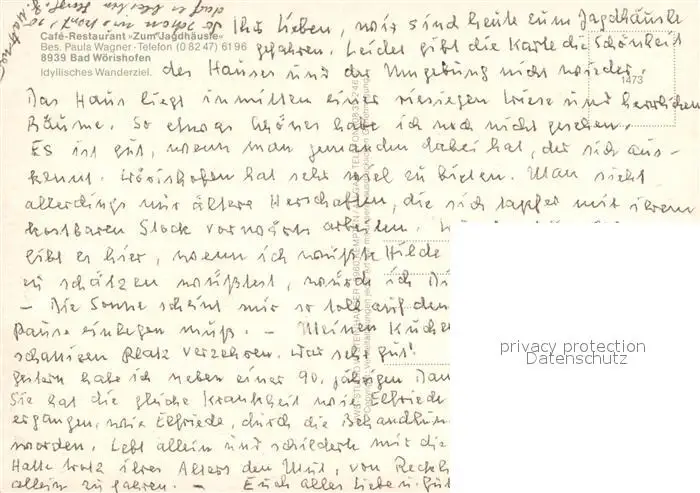 Café-Restaurant »Zum Jagdhäusle«
Bes. Paula Wagner · Telefon (0 82 47) 61 96
8939 Bad Wörishofen
Idyllisches Wanderziel.
1473
Ihr Lieben, wir sind heute zum Jagdhäusle
gefahren. Leider gibt die Karte die Schönheit
des Hauses und der Umgebung nicht wieder.
Das Haus liegt inmitten einer riesigen Wiese und herrlichen
Bäume. So etwas Schönes habe ich noch nicht gesehen.
Es ist gut, wenn man jemanden dabei hat, der sich aus-
kennt. Wörishofen hat sehr viel zu bieten. Man sieht
allerdings nur ältere Herschaften, die sich tapfer mit ihrem
kostbaren Stock vorwärts arbeiten.
gibt es hier, wenn ich wüßte Hilde
zu schätzen wüßtest, würd ich Di
- Die Sonne scheint mir so toll auf den
Pause einlegen muß. - Meinen Kuche
schattigen Platz verzehren. War sehr gut!
Gestern habe ich neben einer 90. jährigen Dam
Sie hat die gleiche Krankheit wie Elfriede
ergangen, wie Elfriede, durch die Behandlun
worden. Lebt allein und schilderte mir die
Hatte trotz ihres Alters den Mut, von
allein zu fahren. - Euch alles Liebe u. Gut
privacy protection
Datenschutz